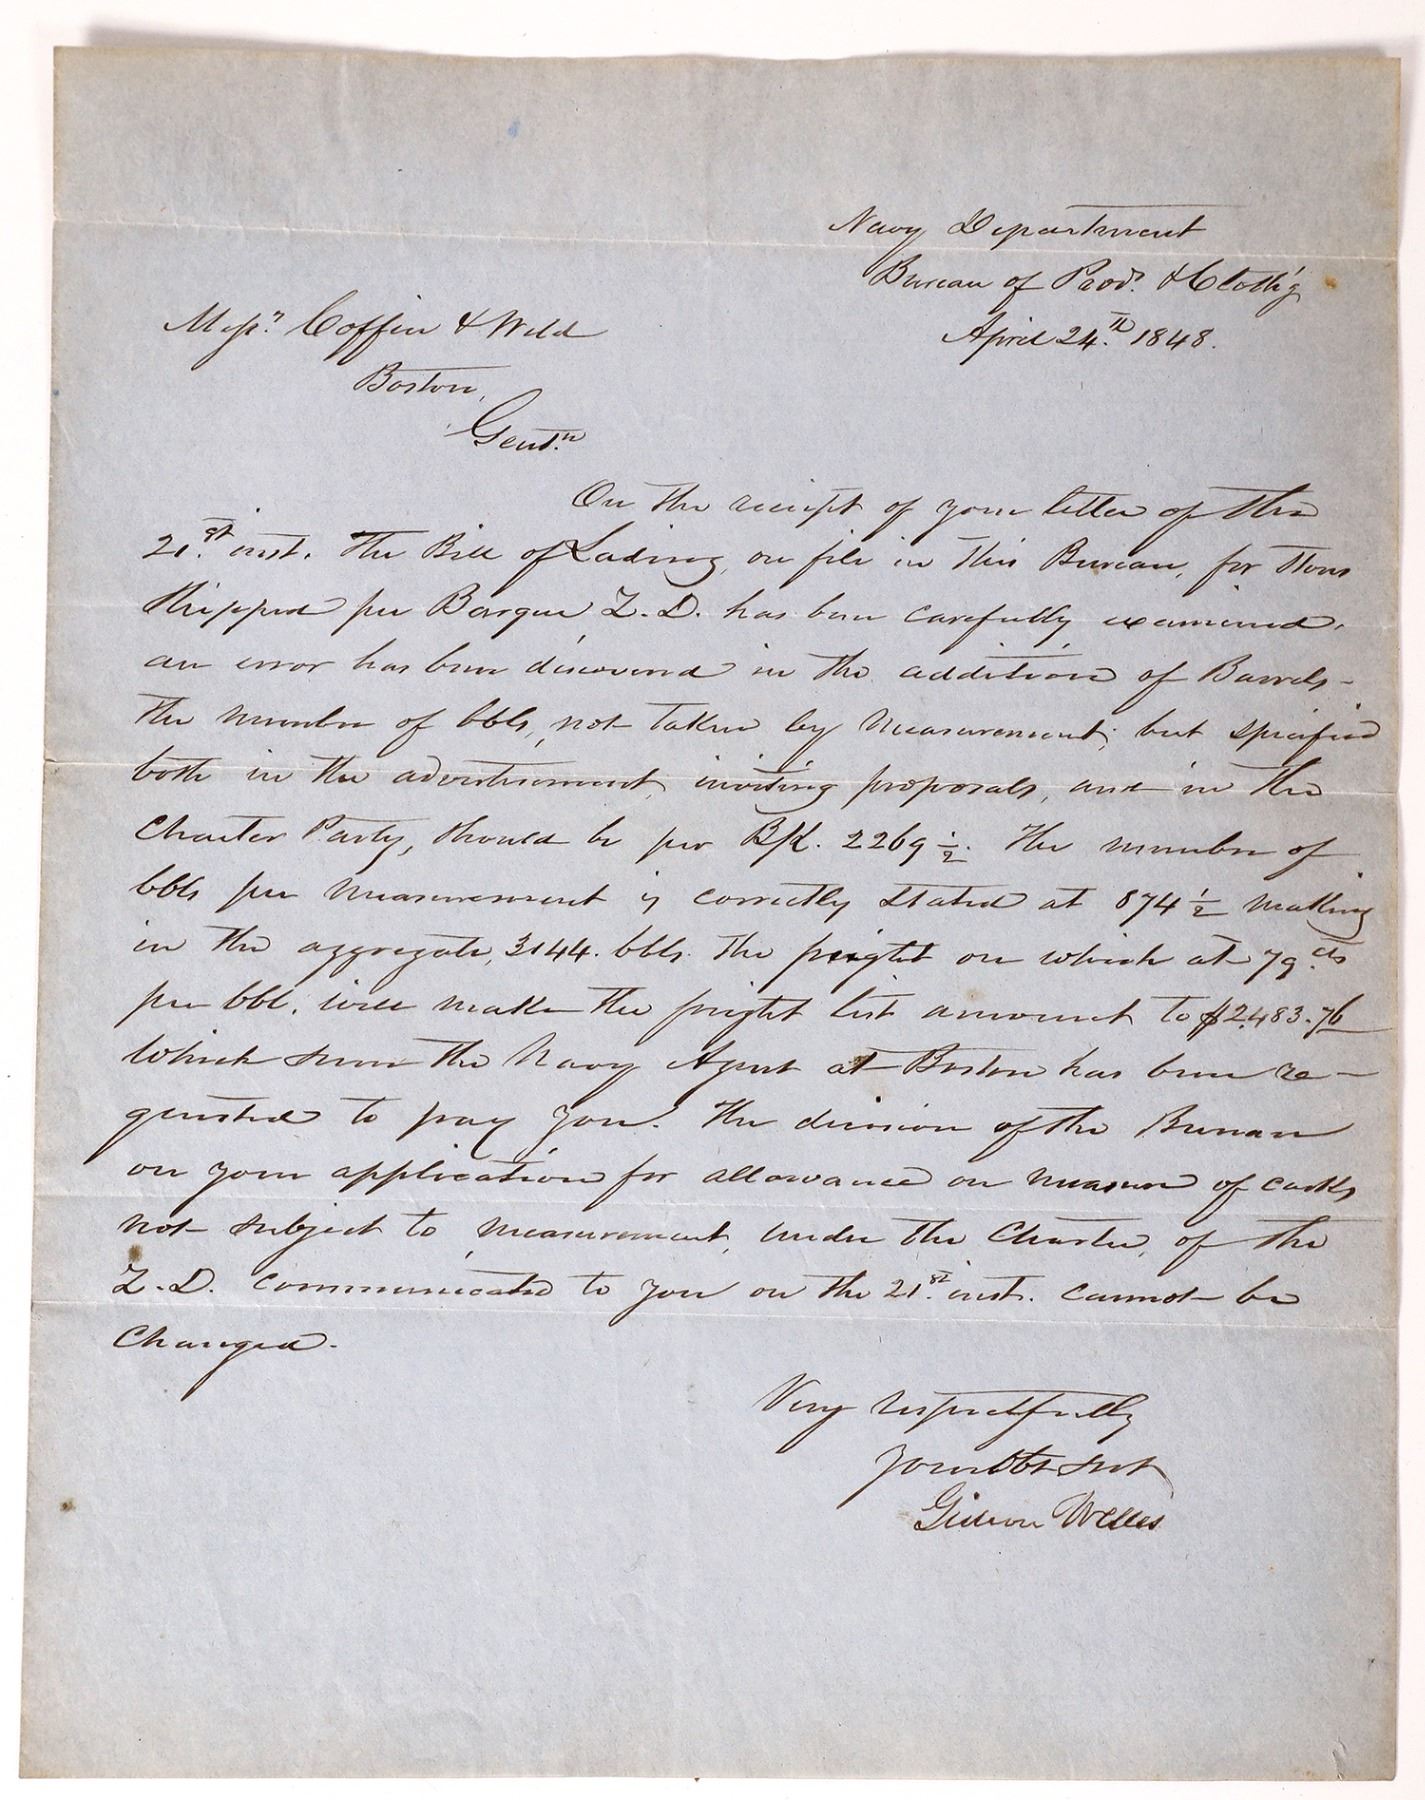 Navy Department
Bureau of Prov.s & Cloth'g
April 24.th 1848.
Mess.rs Coffin & Weld
Boston,
Gent.n
On the receipt of your letter of the
21.st inst. the Bill of Lading, on file in this Bureau, for stores
shipped per Barque Z.D. has been carefully examined.
an error has been discovered in the addition of Barrels –
the number of bbls, not taken by measurement, but specified
both in the advertisement, inviting proposals, and in the
Charter Party, should be per B/L. 2269 1/2. The number of
bbls per measurement is correctly stated at 874 1/2 making
in the aggregate, 3144. bbls. the freight on which at 79 cts
per bbl. will make the freight list amount to $2,483.76
which sum the Navy Agent at Boston has been re-
quested to pay you. The decision of the Bureau
on your application for allowance on measure of casks
not subject to measurement, under the Charter, of the
Z.D. communicated to you on the 21.st inst. cannot be
changed.
Very respectfully
Your Obt Svt
Gideon Welles